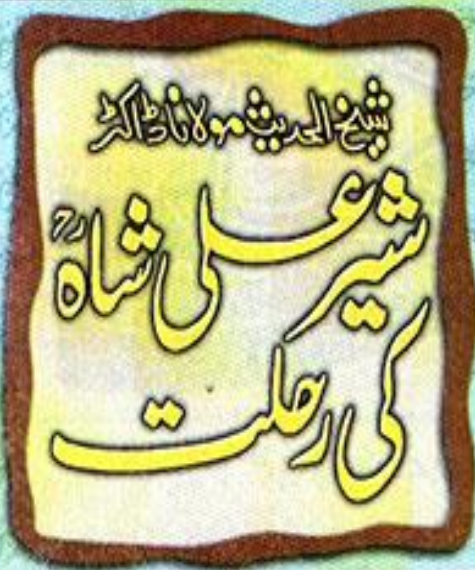 شیخ الحدیث مولانا ڈاکٹر
شیر علی شاہؒ
کی رحلت